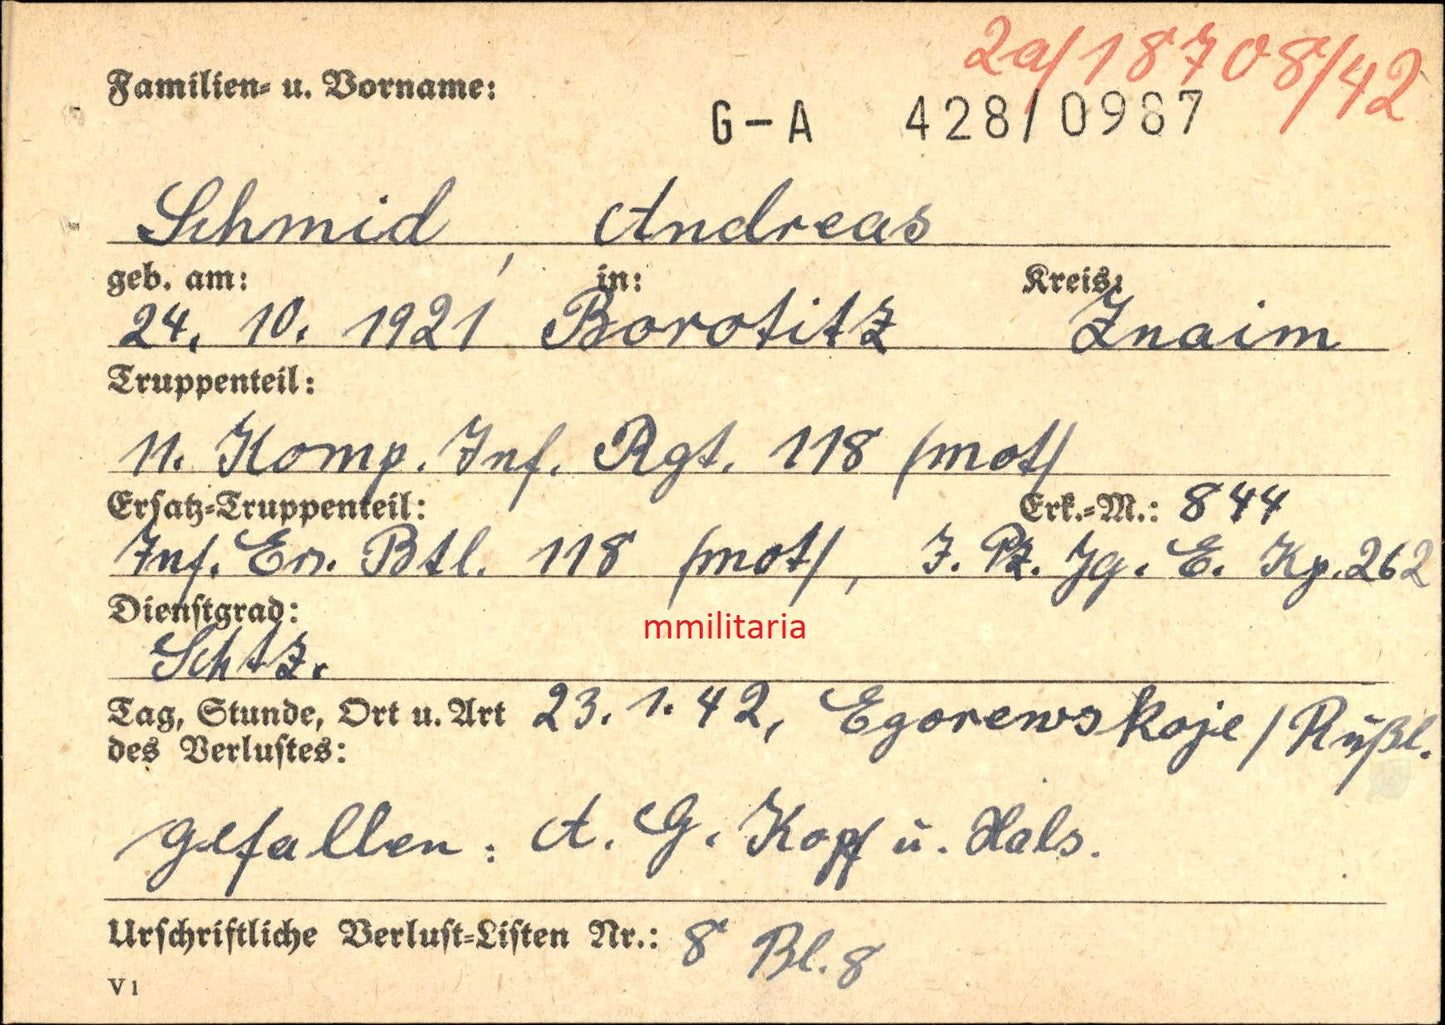 2a/18708/42
Familien- u. Vorname:
G-A 428/0987
Schmid, Andreas
geb. am: in: Kreis:
24. 10. 1921 Borotitz Znaim
Truppenteil:
11. Komp. Inf. Rgt. 118 /mot/
Ersatz-Truppenteil: Erk.-M.: 844
Inf. Ers. Btl. 118 /mot/, I. Pz. Jg. E. Kp. 262
Dienstgrad:
mmilitaria
Schtz.
Tag, Stunde, Ort u. Art 23. 1. 42, Egorewskoje / Rußl.
des Verlustes:
gefallen: A. G. Kopf u. Hals.
Urschriftliche Verlust-Listen Nr.: 8 Bl. 8
V1